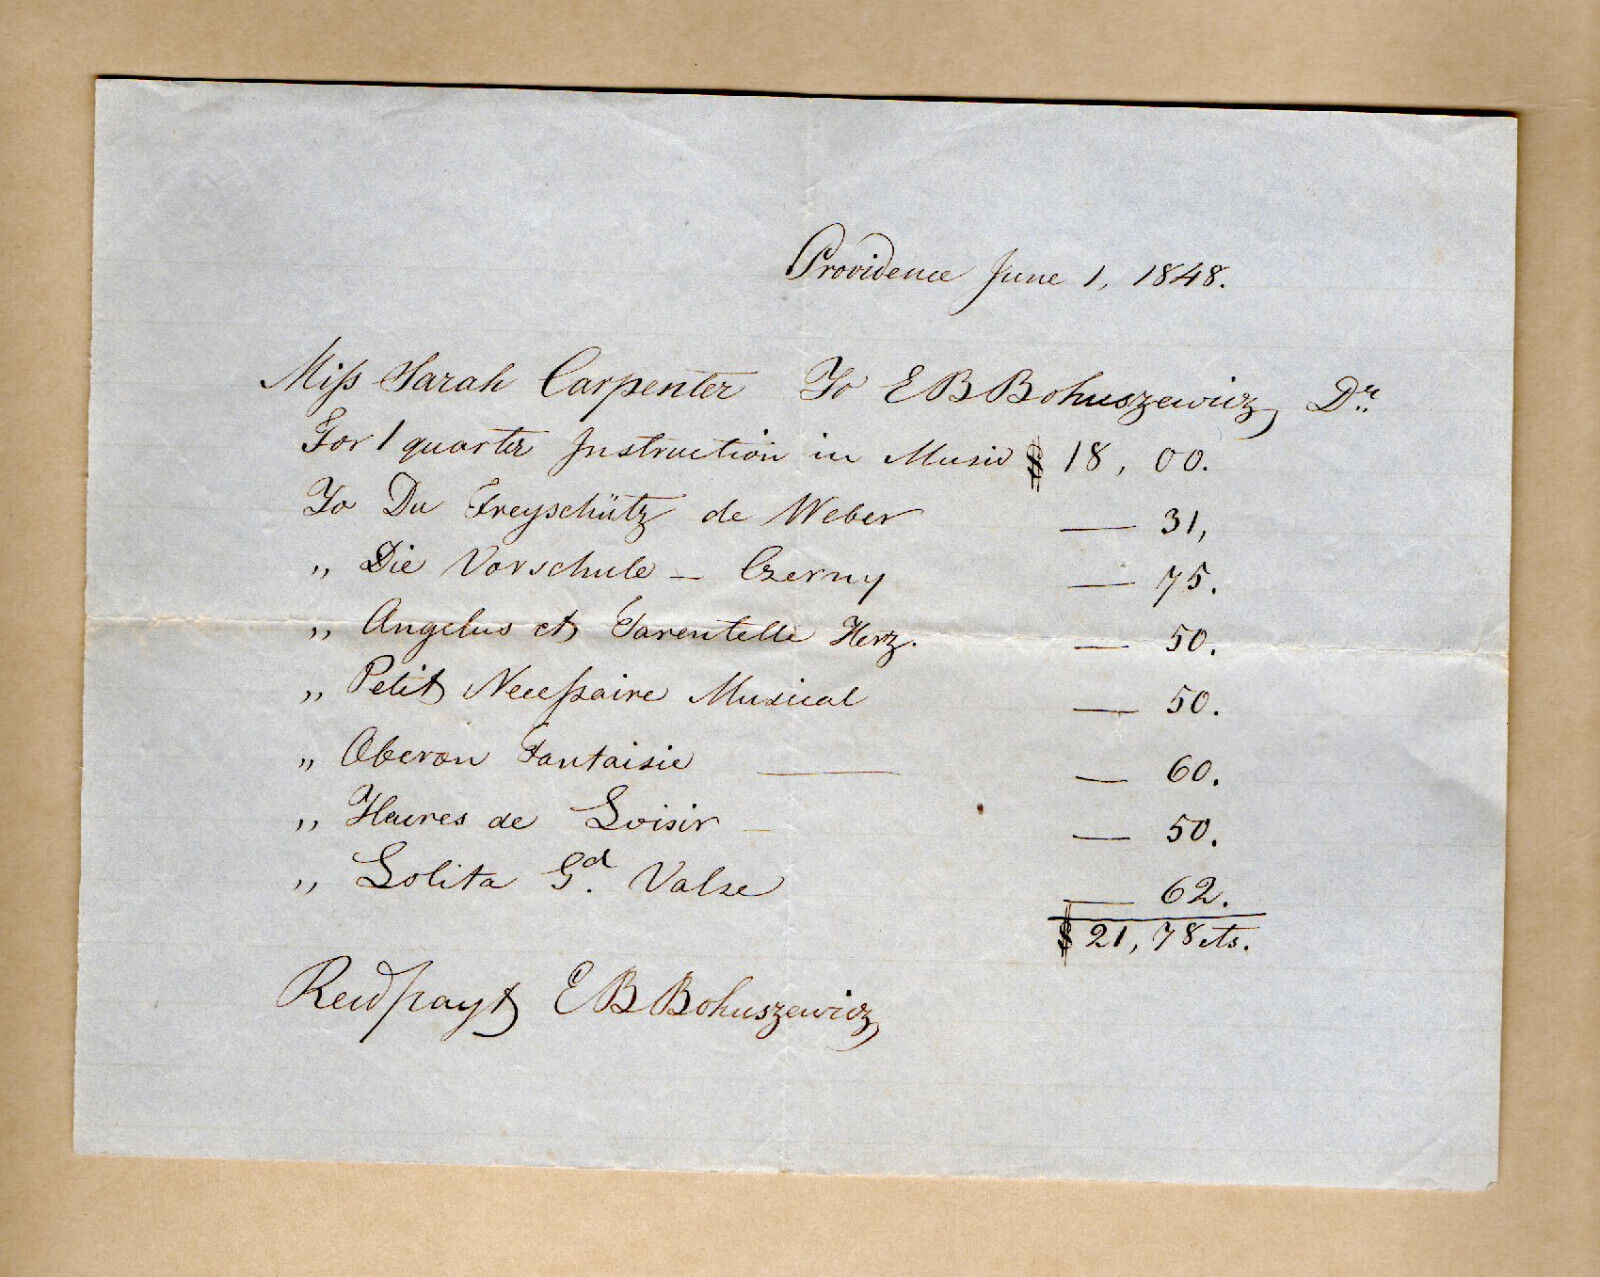 Providence June 1, 1848.
Miss Sarah Carpenter To E B Bohuszewicz Dr.
For 1 quarter Instruction in Music $ 18, 00.
To Du Freyschütz de Weber — 31,
„ Die Vorschule – Czerny — 75.
„ Angelus et Tarentelle Herz. — 50.
„ Petit Necessaire Musical — 50.
„ Oberon Fantaisie — — 60.
„ Heures de Loisir – — 50.
„ Lolita Gd. Valse — 62.
$ 21, 78 cts.
Recd payt E B Bohuszewicz